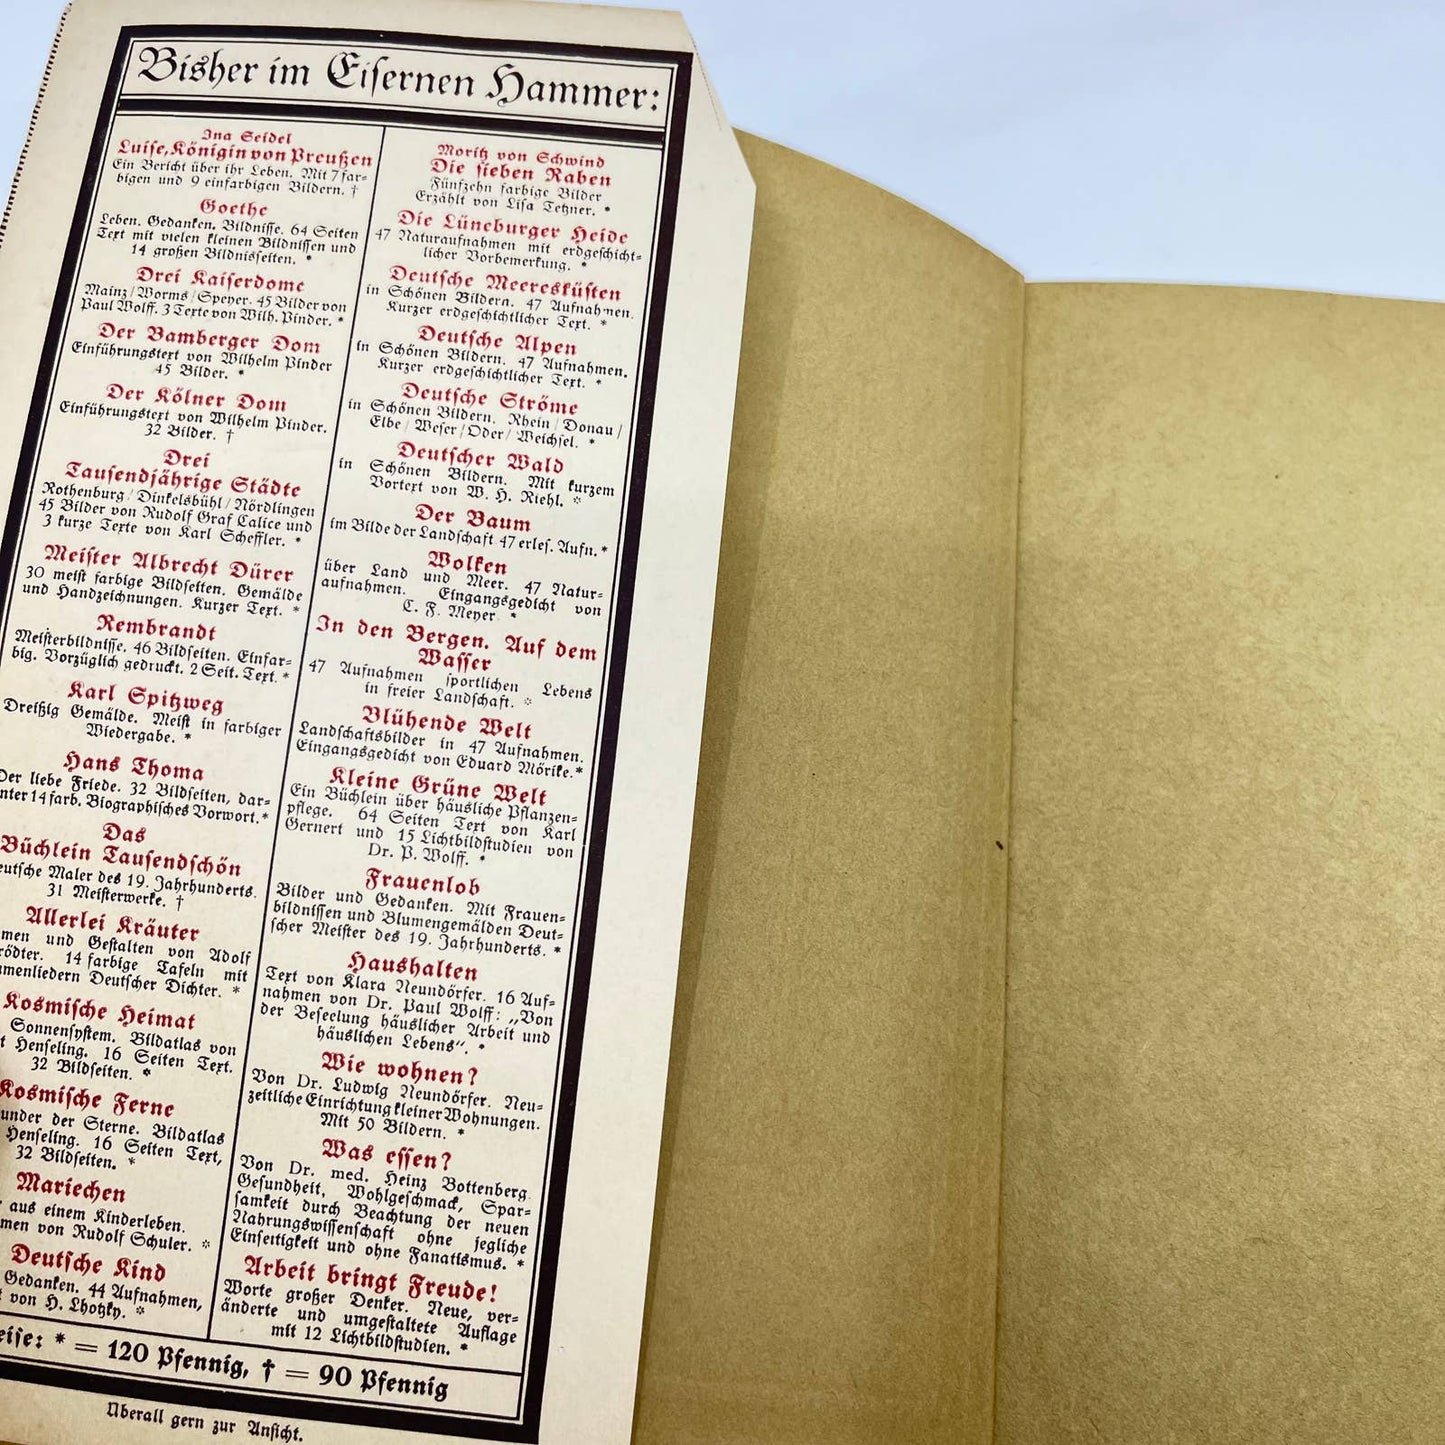 Bisher im Eisernen Hammer:
Ina Seidel
Luise, Königin von Preußen
Ein Bericht über ihr Leben. Mit 7 far-
bigen und 9 einfarbigen Bildern. †
Goethe
Leben. Gedanken. Bildnisse. 64 Seiten
Text mit vielen kleinen Bildnissen und
14 großen Bildnisseiten. *
Drei Kaiserdome
Mainz / Worms / Speyer. 45 Bilder von
Paul Wolff. 3 Texte von Wilh. Pinder. *
Der Bamberger Dom
Einführungstext von Wilhelm Pinder
45 Bilder. *
Der Kölner Dom
Einführungstext von Wilhelm Pinder.
32 Bilder. †
Drei
Tausendjährige Städte
Rothenburg / Dinkelsbühl / Nördlingen
45 Bilder von Rudolf Graf Calice und
3 kurze Texte von Karl Scheffler. *
Meister Albrecht Dürer
30 meist farbige Bildseiten. Gemälde
und Handzeichnungen. Kurzer Text. *
Rembrandt
Meisterbildnisse. 46 Bildseiten. Einfar-
big. Vorzüglich gedruckt. 2 Seit. Text. *
Karl Spitzweg
Dreißig Gemälde. Meist in farbiger
Wiedergabe. *
Hans Thoma
Der liebe Friede. 32 Bildseiten, dar-
nter 14 farb. Biographisches Vorwort. *
Das
Büchlein Tausendschön
eutsche Maler des 19. Jahrhunderts.
31 Meisterwerke. †
Allerlei Kräuter
men und Gestalten von Adolf
rödter. 14 farbige Tafeln mit
umenliedern Deutscher Dichter. *
Kosmische Heimat
Sonnensystem. Bildatlas von
t Henseling. 16 Seiten Text.
32 Bildseiten. *
Kosmische Ferne
under der Sterne. Bildatlas
Henseling. 16 Seiten Text,
32 Bildseiten. *
Mariechen
aus einem Kinderleben.
men von Rudolf Schuler. *
Deutsche Kind
Gedanken. 44 Aufnahmen,
von H. Lhotzky. *
Moritz von Schwind
Die sieben Raben
Fünfzehn farbige Bilder
Erzählt von Lisa Tetzner. *
Die Lüneburger Heide
47 Naturaufnahmen mit erdgeschicht-
licher Vorbemerkung. *
Deutsche Meeresküsten
in Schönen Bildern. 47 Aufnahmen.
Kurzer erdgeschichtlicher Text. *
Deutsche Alpen
in Schönen Bildern. 47 Aufnahmen.
Kurzer erdgeschichtlicher Text. *
Deutsche Ströme
in Schönen Bildern. Rhein / Donau /
Elbe / Weser / Oder / Weichsel. *
Deutscher Wald
in Schönen Bildern. Mit kurzem
Vortext von W. H. Riehl. *
Der Baum
im Bilde der Landschaft 47 erles. Aufn. *
Wolken
über Land und Meer. 47 Natur-
aufnahmen. Eingangsgedicht von
C. F. Meyer *
In den Bergen. Auf dem
Wasser
47 Aufnahmen sportlichen Lebens
in freier Landschaft. *
Blühende Welt
Landschaftsbilder in 47 Aufnahmen.
Eingangsgedicht von Eduard Mörike. *
Kleine Grüne Welt
Ein Büchlein über häusliche Pflanzen-
pflege. 64 Seiten Text von Karl
Gernert und 15 Lichtbildstudien von
Dr. P. Wolff. *
Frauenlob
Bilder und Gedanken. Mit Frauen-
bildnissen und Blumengemälden Deut-
scher Meister des 19. Jahrhunderts. *
Haushalten
Text von Klara Neundörfer. 16 Auf-
nahmen von Dr. Paul Wolff: „Von
der Beseelung häuslicher Arbeit und
häuslichen Lebens“. *
Wie wohnen?
Von Dr. Ludwig Neundörfer. Neu-
zeitliche Einrichtung kleiner Wohnungen.
Mit 50 Bildern. *
Was essen?
Von Dr. med. Heinz Bottenberg.
Gesundheit, Wohlgeschmack, Spar-
samkeit durch Beachtung der neuen
Nahrungswissenschaft ohne jegliche
Einseitigkeit und ohne Fanatismus. *
Arbeit bringt Freude!
Worte großer Denker. Neue, ver-
änderte und umgestaltete Auflage
mit 12 Lichtbildstudien. *
eise: * = 120 Pfennig, † = 90 Pfennig
Überall gern zur Ansicht.